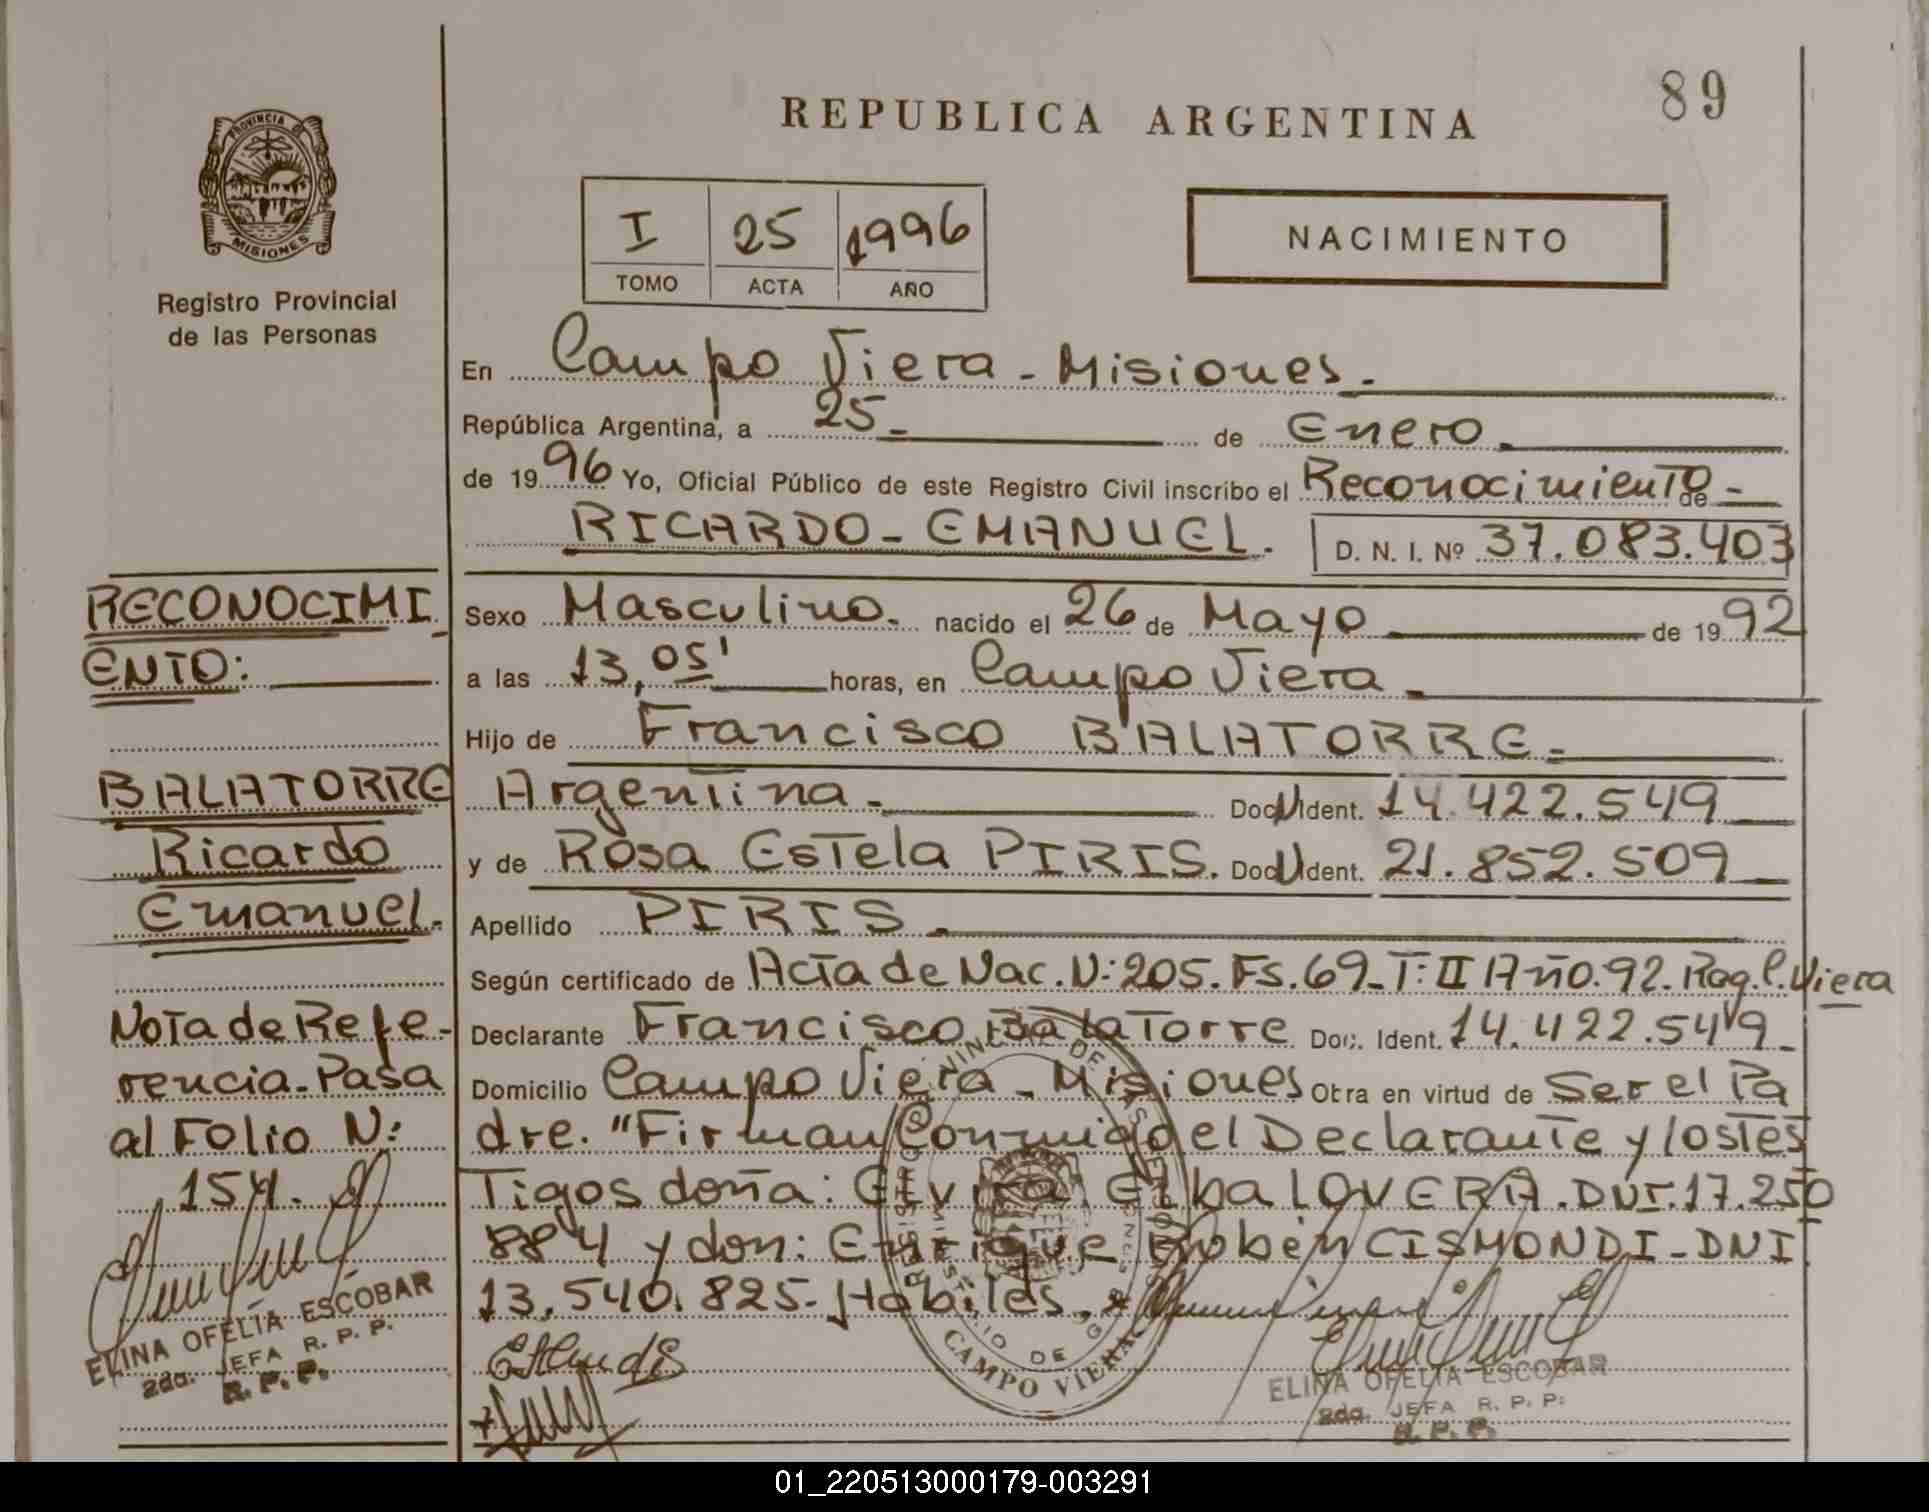 89
REPUBLICA ARGENTINA
PROVINCIA DE
MISIONES
Registro Provincial
de las Personas
I 25 1996
TOMO ACTA AÑO
NACIMIENTO
En Campo Viera - Misiones.
República Argentina, a 25 - de Enero.
de 1996 Yo, Oficial Público de este Registro Civil inscribo el Reconocimiento de
RICARDO - EMANUEL. D. N. I. Nº 37.083.403
Sexo Masculino. nacido el 26 de Mayo de 1992
a las 13,05' horas, en Campo Viera
Hijo de Francisco BALATORRE.
Argentina. Doc. Ident. 14.422.549
y de Rosa Estela PIRIS. Doc. Ident. 21.852.509
Apellido PIRIS.
Según certificado de Acta de Nac. N: 205. Fs. 69 - T: II Año. 92. Viera
Declarante Francisco Balatorre Doc. Ident. 14.422.549
Domicilio Campo Viera - Misiones Obra en virtud de Ser el Pa
dre. "Firman Conmigo el Declarante y los tes
Tigos doña: Elvira Elba LOVERA. DNI. 17.250
884 y don: Enrique Rubén CISMONDI - DNI
13.540.825 - Habiles.
CAMPO VIERA
ELINA OFELIA ESCOBAR
2da. JEFA R. P. P.
R. P. P.
RECONOCIMI
ENTO:
BALATORRE
Ricardo
Emanuel.
Nota de Refe-
rencia - Pasa
al Folio N:
154.
ELINA OFELIA ESCOBAR
2da. JEFA R. P. P.
R. P. P.
01_220513000179-003291